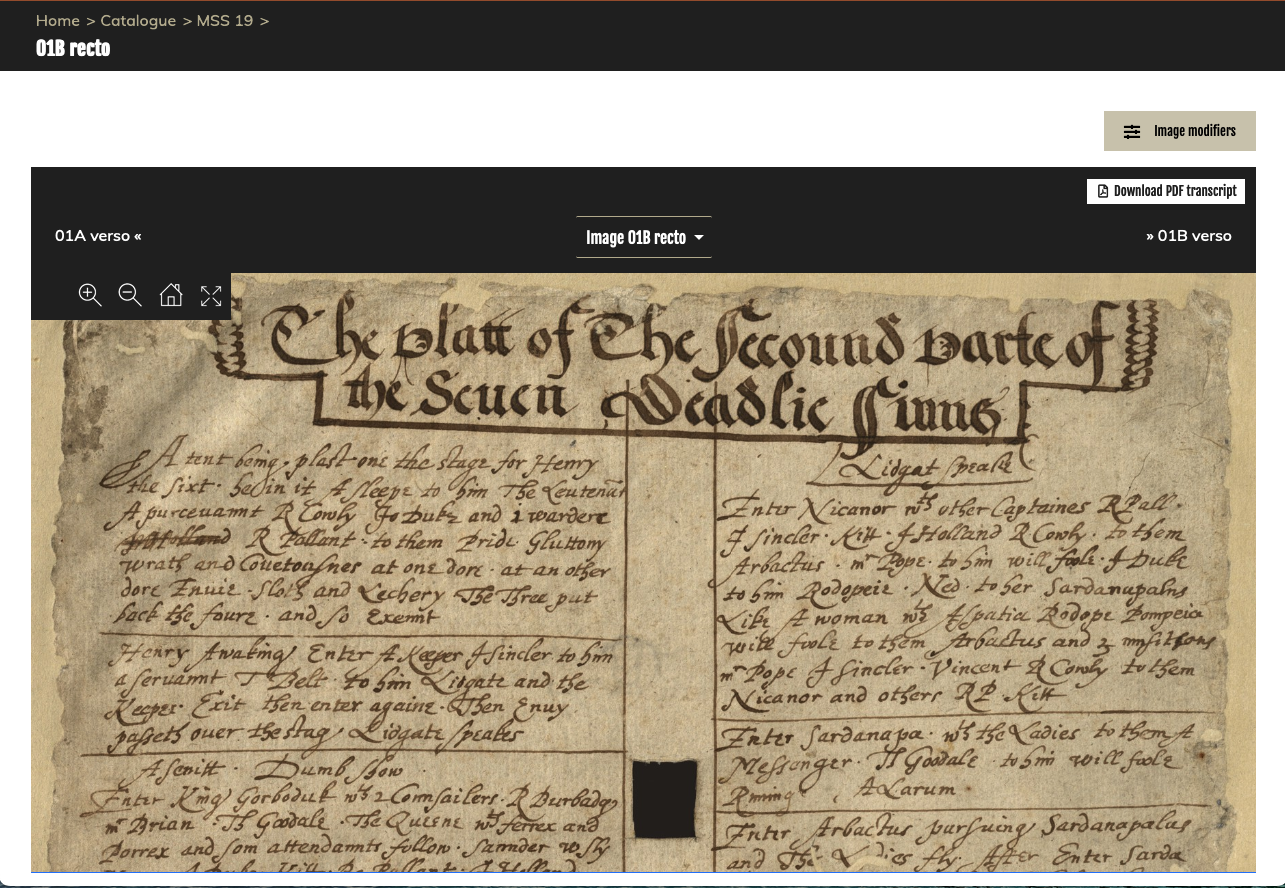 Home > Catalogue > MSS 19 >
01B recto
Image modifiers
Download PDF transcript
01A verso «
Image 01B recto
» 01B verso
The platt of The Secound parte of
the Seuen Deadlie Sinns
A tent being plast one the stage for Henry
the sixt · he in it A sleepe to him The Leutenāt
A purceuaunt R Cowly Jo Duke and 1 wardere
R Pallant · to them Pride Gluttony
wrath and Couetousnes at one dore · at an other
dore Enuie · Sloth and Lechery The Three put
back the foure · and so Exeunt
Henry Awaking Enter A Keeper J Sincler to him
a seruaunt T Belt · to him Lidgate and the
Keeper · Exit then enter againe · Then Enuy
passeth ouer the stag Lidgate speakes
A senitt · Dumb show ·
Enter King Gorboduk wth 2 Counsailers · R Burbadg
mr Brian · Th Goodale · The Queene wth ferrex and
Porrex and som attendaunts follow · saunder w sly
Lidgat speake
Enter Nicanor wth other Captaines R Pall ·
J sincler · Kitt · J Holland R Cowly · to them
Arbactus · mr Pope · to him will foole · J Duke
to him Rodopeie · Ned · to her Sardanupalus
Like A woman wth Aspatia Rodope Pompeia
will foole to them Arbactus and 2 musitions
mr Pope J sincler · Vincent R Cowly to them
Nicanor and others R P · Kitt
Enter Sardanapa · wth the Ladies to them A
Messenger · Th Goodale · to him will foole
Runing · A Larum ·
Enter Arbactus pursuing Sardanapalus
and The Ladies fly · After Enter Sarda